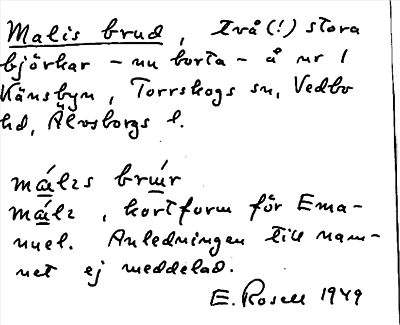 Malis brud, Två (!) stora
björkar - nu borta - å nr 1
Känsbyn, Torrskogs sn, Vedbo
hd, Älvsborgs l.
málɩs brɯ́r
málɩ, kortform för Ema-
nuel. Anledningen till nam-
net ej meddelad.
E. Rosell 1949